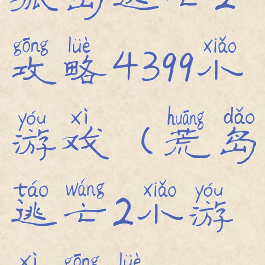 孤岛逃亡2
gōng lüè xiǎo
攻略4399小
yóu xì huāng dǎo
游戏（荒岛
táo wáng xiǎo yóu
逃亡2小游
xì gōng lüè